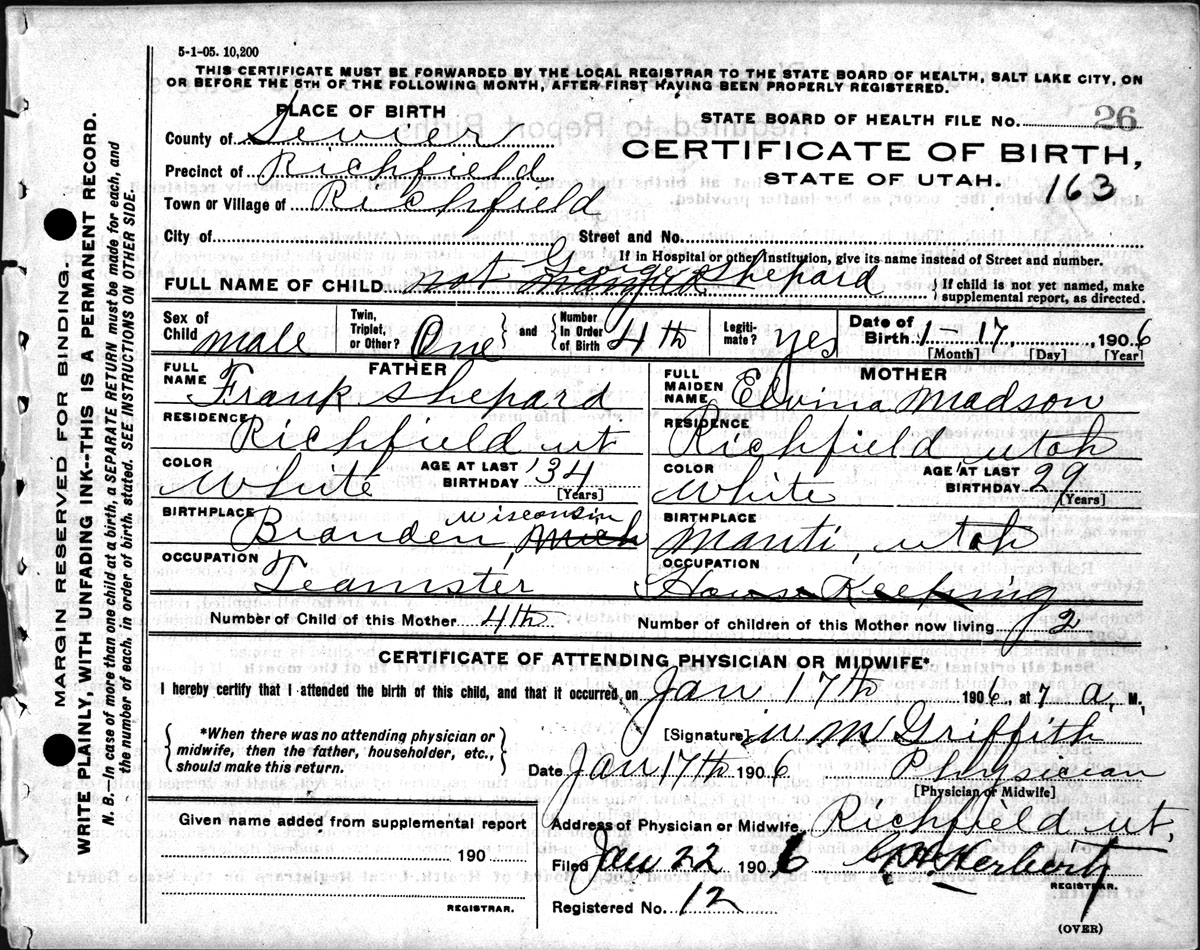 5-1-05. 10,200
THIS CERTIFICATE MUST BE FORWARDED BY THE LOCAL REGISTRAR TO THE STATE BOARD OF HEALTH, SALT LAKE CITY, ON
OR BEFORE THE 5TH OF THE FOLLOWING MONTH, AFTER FIRST HAVING BEEN PROPERLY REGISTERED.
PLACE OF BIRTH
County of Sevier
Precinct of Richfield
Town or Village of Richfield
STATE BOARD OF HEALTH FILE NO. 26
CERTIFICATE OF BIRTH,
STATE OF UTAH. 163
City of Street and No.
If in Hospital or other Institution, give its name instead of Street and number.
FULL NAME OF CHILD not George Shepard { If child is not yet named, make
supplemental report, as directed.
Sex of Child male Twin, Triplet, or Other? One and Number In Order of Birth 4th Legiti- mate? yes Date of Birth 1-17, , 1906
[Month] [Day] [Year]
FATHER
FULL NAME Frank Shepard
RESIDENCE Richfield ut
COLOR White AGE AT LAST BIRTHDAY 34
[Years]
BIRTHPLACE Branden, Wisconsin Mich
OCCUPATION Teamster
MOTHER
FULL MAIDEN NAME Elvina Madson
RESIDENCE Richfield utah
COLOR White AGE AT LAST BIRTHDAY 29
[Years]
BIRTHPLACE Manti, utah
OCCUPATION House Keeping
Number of Child of this Mother 4th Number of children of this Mother now living 2
CERTIFICATE OF ATTENDING PHYSICIAN OR MIDWIFE*
I hereby certify that I attended the birth of this child, and that it occurred on Jan 17th 1906, at 7 a. M.
{ *When there was no attending physician or
midwife, then the father, householder, etc.,
should make this return. }
[Signature] W M Griffith
Date Jan 17th 1906 Physician
[Physician or Midwife]
Given name added from supplemental report
190
REGISTRAR.
Address of Physician or Midwife Richfield ut,
Filed Jan 22 1906 Herbert
REGISTRAR.
Registered No. 12
(OVER)
MARGIN RESERVED FOR BINDING.
WRITE PLAINLY, WITH UNFADING INK--THIS IS A PERMANENT RECORD.
N. B.—In case of more than one child at a birth, a SEPARATE RETURN must be made for each, and
the number of each, in order of birth, stated. SEE INSTRUCTIONS ON OTHER SIDE.